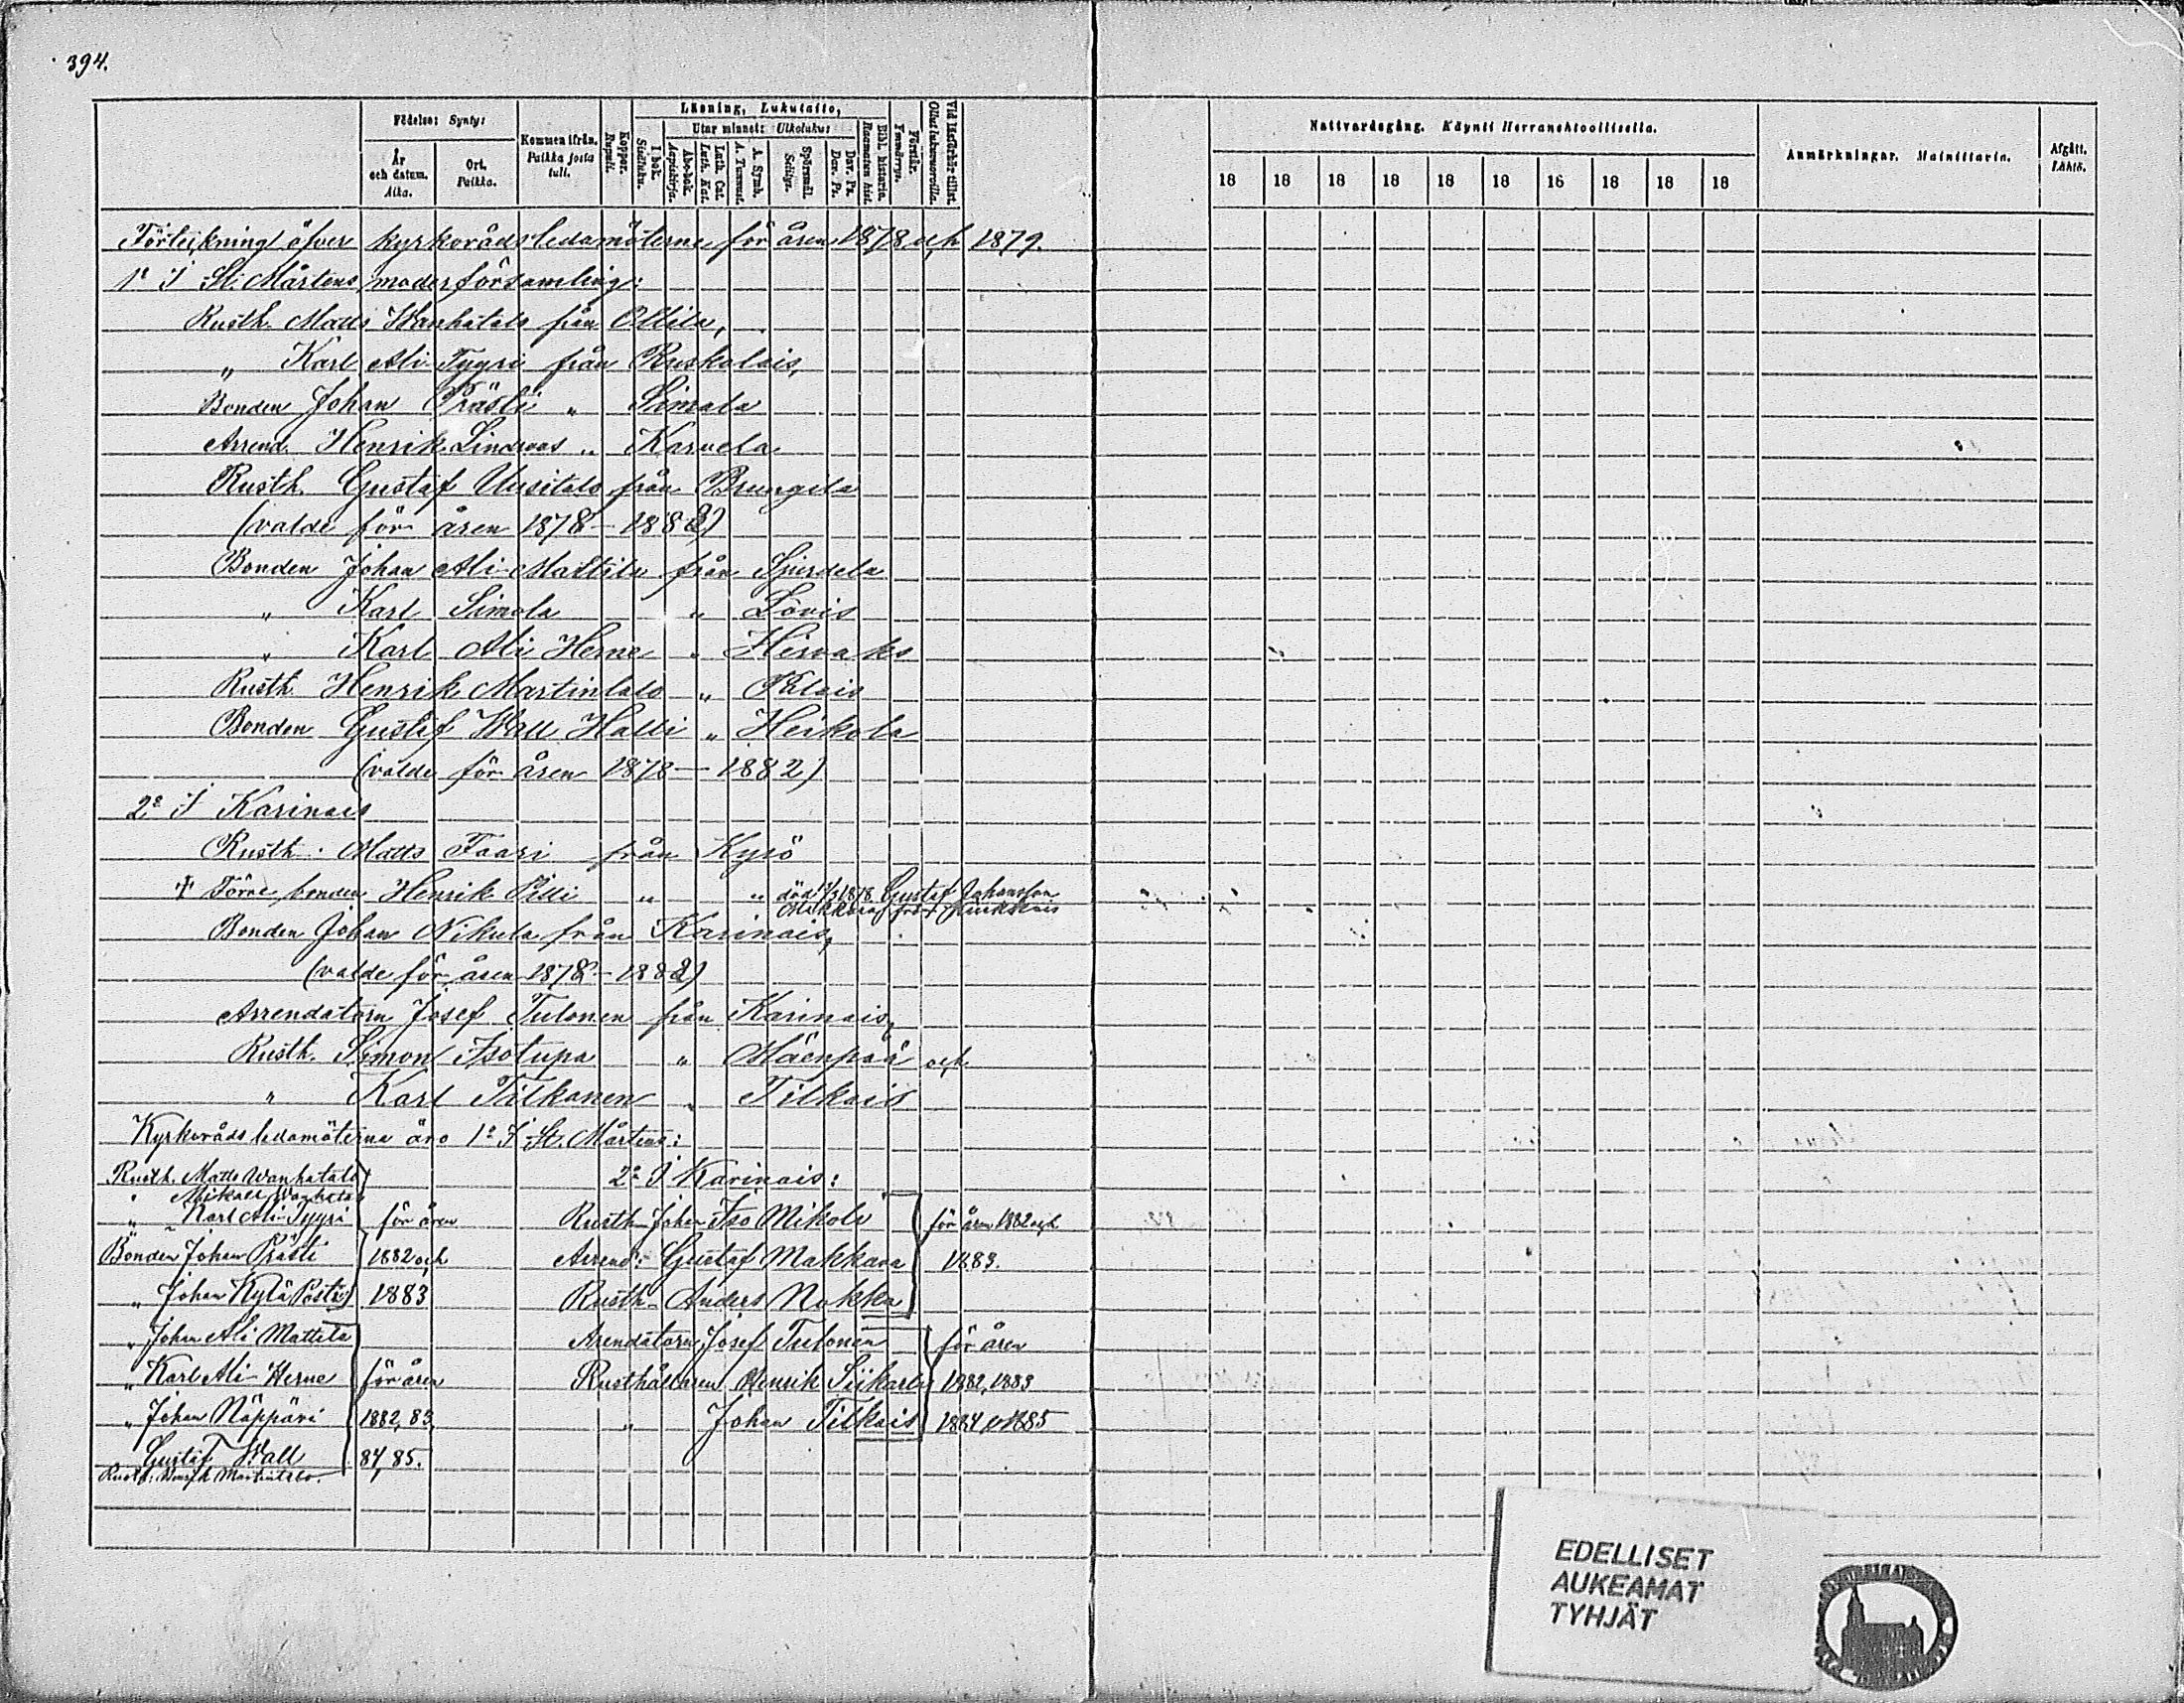 394.
Födelse: Syntyä:
År och datum. Aika.
Ort. Paikka.
Kommen ifrån. Paikka josta tuli.
Koppor. Rupuli.
Läsning, Lukutaito,
I bok. Sisäluku.
Utur minnet: Ulkoluku:
Abc-bok. Aapiskirja.
Luth. Cat. Luth. Kat.
A. Symb. A. Tunnust.
Spörsmål. Selitys.
Dav. Ps. Dav. Ps.
Bibl. historia. Raamatun hist.
Förstår. Ymmärrys.
Vid läsförhör tillst. Ollut lukuvuoroilla.
Nattvardsgång. Käynti Herranehtoollisella.
18 18 18 18 18 18 18 18 18 18
Anmärkningar. Muistutuksia.
Afgått. Lähtö.
Förteckning öfver kyrkorådsledamöterne för åren 1878 och 1879.
1:o I St. Mårtens moderförsamling:
Rusth. Matts Wanhatalo från Ollila,
„ Karl Ali-Tyyri från Ruskalais,
Bonden Johan Prästi „ Simala
Arrend. Henrik Lindroos „ Karvela
Rusth. Gustaf Uusitalo från Brungila
(valde för åren 1878-1882)
Bonden Johan Ali-Mattila från Sjurdela
„ Karl Simola „ Lovis
„ Karl Ali Herne „ Hirvaks
Rusth. Henrik Martintalo „
Bonden Gustaf Wall Halli „ Heikola
(valde för åren 1878-1882)
2:o I Karinais
Rusth. Matts Faari från Kyrö
† Förre bonden Henrik Pilli „ „ död 1878 Gustaf Johansson
Makkara från
Bonden Johan Nikula från Karinais,
(valde för åren 1878-1882)
Arrendatorn Josef Tulonen från Karinais,
Rusth. Simon Isotupa „ Mäenpää och
„ Karl Tilkanen „ Tilkais
Kyrkoråds ledamöterne äro 1:o I St. Mårtens:
Rusth. Matts Wanhatalo
2:o I Karinais:
„ Mikael Wanhatalo
„ Karl Ali-Tyyri för åren
Rusth. Johan Iso Mikola för åren 1882 och
Bonden Johan Prästi 1882 och
Arrend: Gustaf Makkara 1883.
„ Johan Kylä Posti 1883
Rusth. Anders Nokka
„ Johan Ali Mattila
Arendatorn Josef Tulonen för åren
„ Karl Ali-Herne för åren
Rusthållaren Henrik Siikarla 1882, 1883
„ Johan Näppäri 1882, 83,
„ Johan Tilkais 1884, 1885
Gustaf Wall 84, 85.
Rusth: Martintalo.
EDELLISET
AUKEAMAT
TYHJÄT